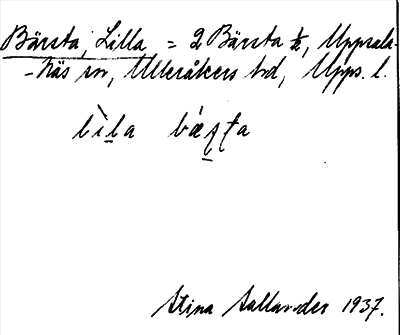 Bärsta, Lilla = 2 Bärsta ½, Uppsala-
-Näs sn, Ulleråkers hd, Upps. l.
lìla
Stina Sallander 1937.